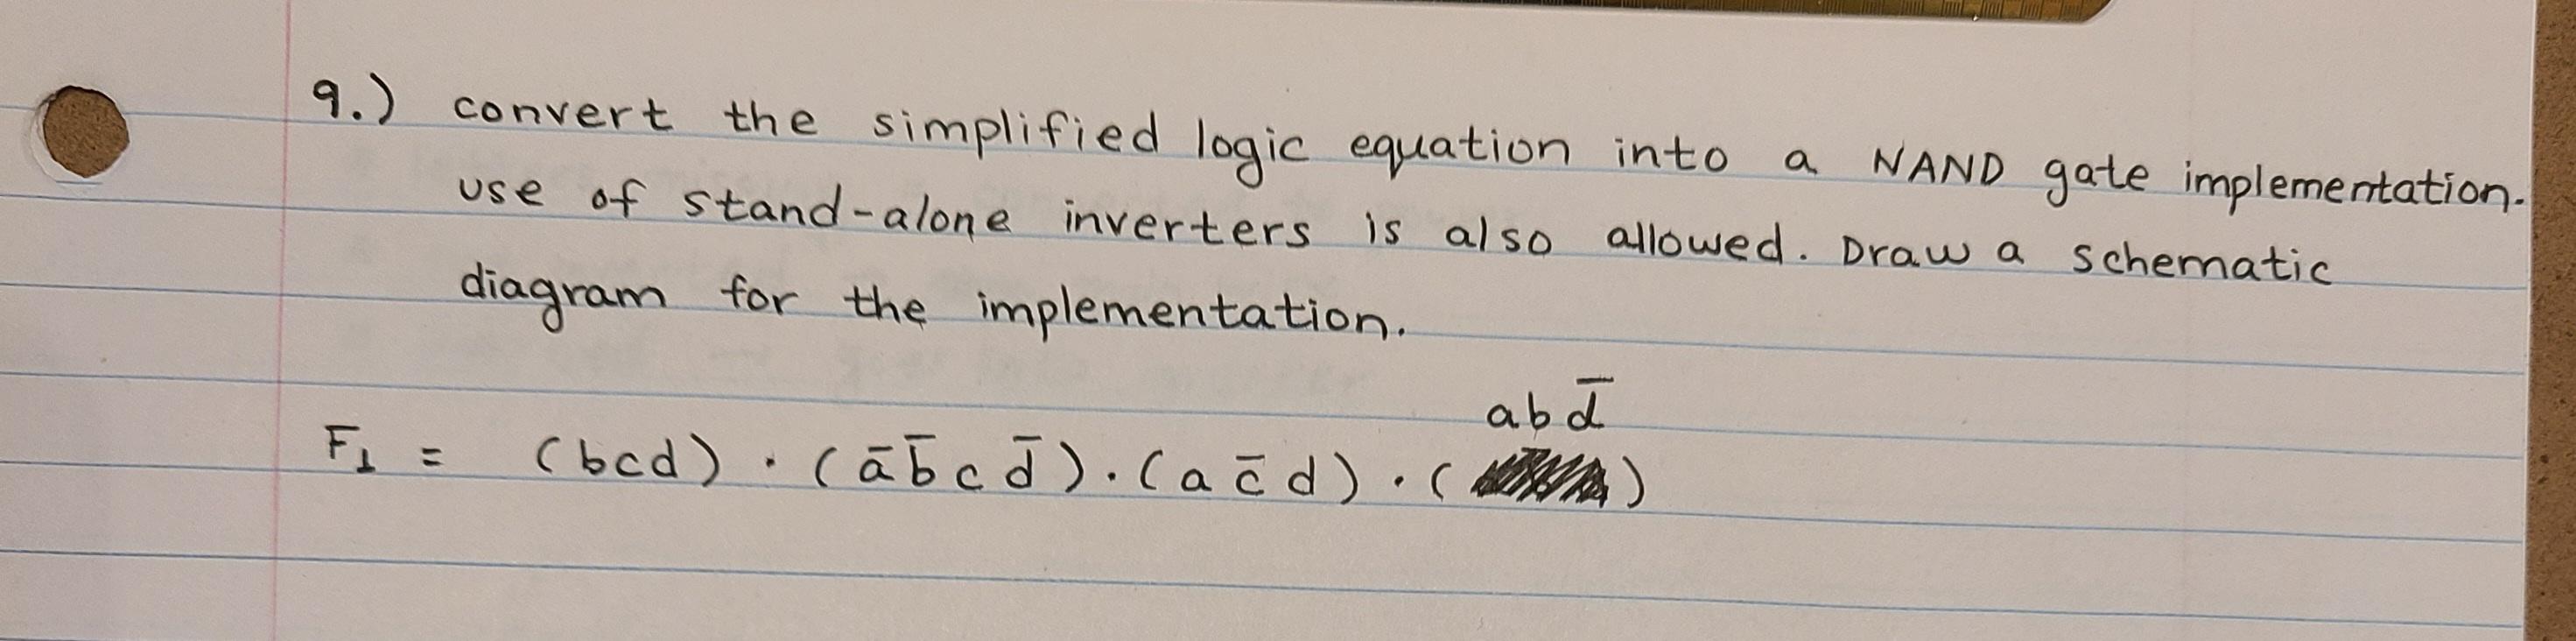 9.) convert the simplified logic equation into a NAND gate implementation.
use of stand-alone inverters is also allowed. Draw a schematic
diagram for the implementation.
abd̅
F₁ = (bcd) · (a̅ b̅ c d̅) · (a c̅ d) · ( )